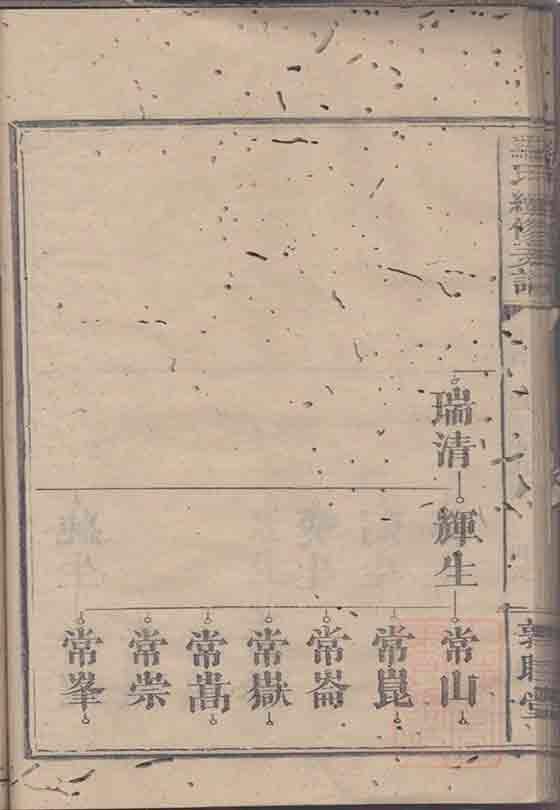 羅氏續修宗譜
敦睦堂
瑞清
輝生
常山
常崑
常崙
常嶽
常嵩
常崇
常峯